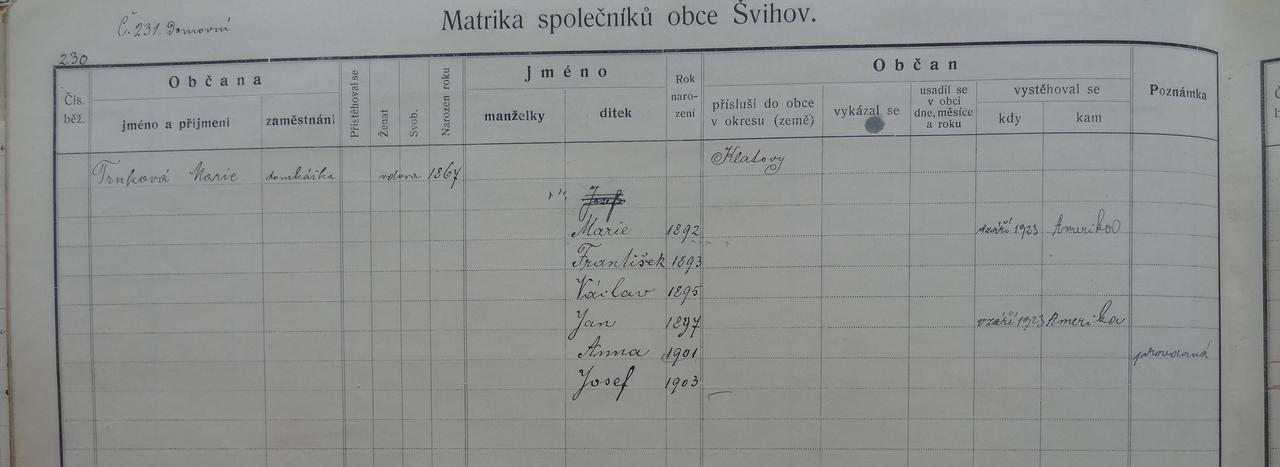 Č. 231. Domovní
Matrika společníků obce Švihov.
230
Čís. běž.
Občana
jméno a příjmení
zaměstnání
Přistěhoval se
Ženat
Svob.
Narozen roku
Jméno
manželky
dítek
Rok naro- zení
Občan
přísluší do obce v okresu (země)
vykázal se
usadil se v obci dne, měsíce a roku
vystěhoval se
kdy
kam
Poznámka
Klatovy
Marie domkářka vdova 1867
Josef
Marie 1892 září 1923 Amerika
František 1893
Václav 1895
Jan 1897 v září 1923 Amerika
Anna 1901 provdaná
Josef 1903